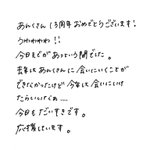 あんくさん13周年おめでとうございます!
うわわわわ!!
今日までがあっという間でした。
去年はあんくさんに会いにいくことが
できなかったけど今年は会いにいけ
たらいいなぁ…
今日もだいすきです。
応援しています。